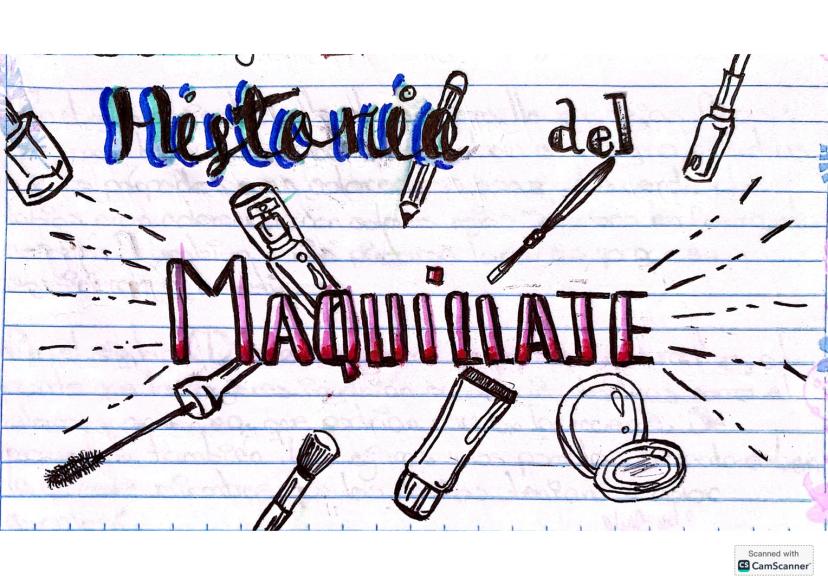 Historia del
MAQUillAJE
Scanned with
CS CamScanner